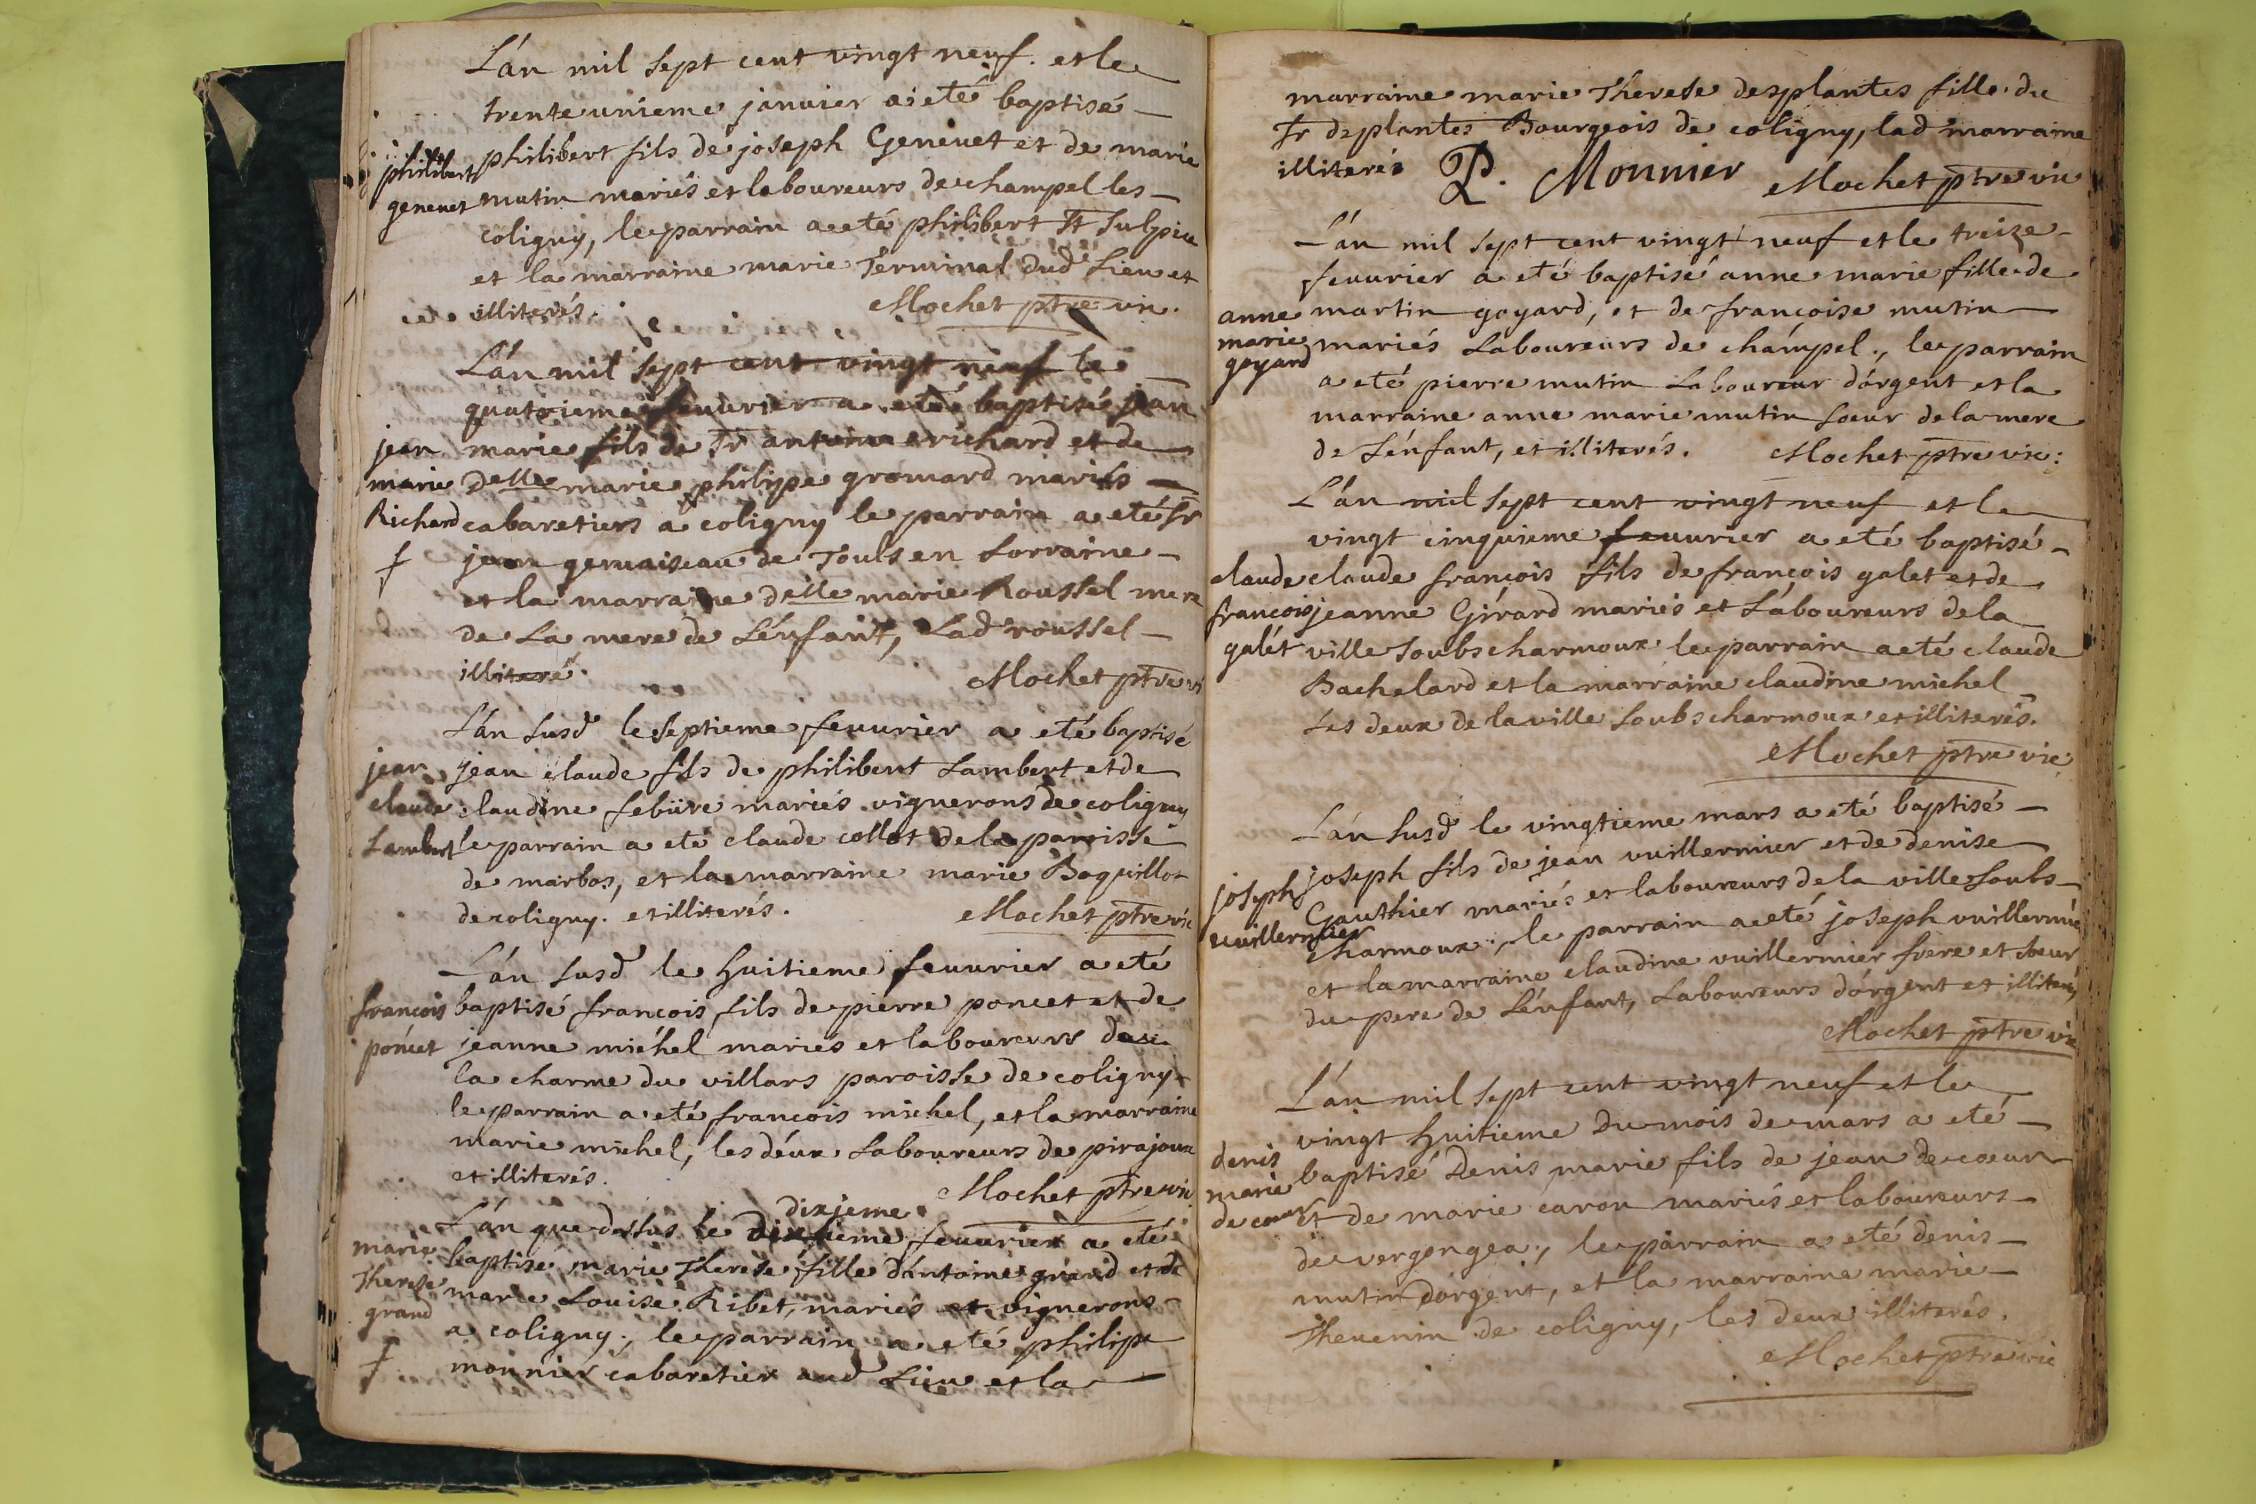 L'án mil sept cent vingt neuf. et le
trente unieme janvier a eté baptisé
philibert genevet
philibert fils de joseph Genevet et de marie
mutin mariés et laboureurs de champel les
coligny, le parrain a eté philibert St Sulpice
et la marraine marie Terminal dud Lieu et
illiterés. Mochet ptre vic.
L'án mil sept cent vingt neuf le
quatrieme feuurier a eté baptisé jean
jean marie Richard
marie fils de Sr antoine richard et de
Delle marie philippe gromard mariés
cabaretiers a coligny le parrain a eté Sr
jean gervaiseau de Touls en Lorraine
et la marraine delle marie Roussel mere
de La mere de L'énfant, Lad roussel
illiteré. Mochet ptre vi
L'án susd le septieme feuurier a eté baptisé
jean claude Lambert
jean claude fils de philibert Lambert et de
claudine febüre mariés vignerons de coligny
le parrain a eté claude collet de la paroisse
de marbos, et la marraine marie Boquillot
de coligny. et illiterés. Mochet ptre vic
L'án susd le huitieme feuurier a eté
françois poncet
baptisé françois fils de pierre poncet et de
jeanne michel mariés et laboureurs de
la charme du villars paroisse de coligny
le parrain a eté françois michel, et la marraine
marie michel, les deux Laboureurs de pirajoux
et illiterés. Mochet ptre vic
dixjeme
L'án que dessus le dixieme feuurier a eté
marie Therese grand
baptisé marie Therese fille d'antoine grand et de
marie Louise Ribet, mariés et vignerons
a coligny., le parrain a eté philipe
monnier cabaretier aud Lieu et la
marraine marie Therese desplantes fille du
Sr desplantes Bourgeois de coligny, lad marraine
illiterés P. Monnier Mochet ptre vic
L'án mil sept cent vingt neuf et le treize
feuurier a eté baptisé anne marie fille de
anne marie goyard
martin goyard, et de françoise mutin
mariés Laboureurs de chámpel., le parrain
a eté pierre mutin Laboureur d'órgent et la
marraine anne marie mutin soeur de la mere
de L'énfant, et illiterés. Mochet ptre vic:
L'án mil sept cent vingt neuf et le
vingt cinquieme feuurier a eté baptisé
claude françois galét
claude françois fils de françois galet et de
jeanne Girard mariés et Láboureurs de la
ville soubs charmoux le parrain a eté claude
Bachelard et la marraine claudine michel
Les deux de la ville soubs charmoux et illiterés.
Mochet ptre vic
L'án susd le vingtieme mars a eté baptisé
joseph vuillermier
joseph fils de jean vuillermier et de denise
Gauthier mariés et laboureurs de la ville soubs
charmoux., le parrain a eté joseph vuillermier
et la marraine claudine vuillermier frere et soeur
du pere de L'énfant, Laboureurs d'órgent et illiterés
Mochet ptre vic
L'án mil sept cent vingt neuf et le
vingt huitieme du mois de mars a eté
denis marie de coeur
baptisé Denis marie fils de jean de coeur
et de marie caron mariés et laboureurs
de vergongea., le parrain a eté denis
mutin d'órgent, et la marraine marie
Thevenin de coligny, les deux illiterés.
Mochet ptre vic